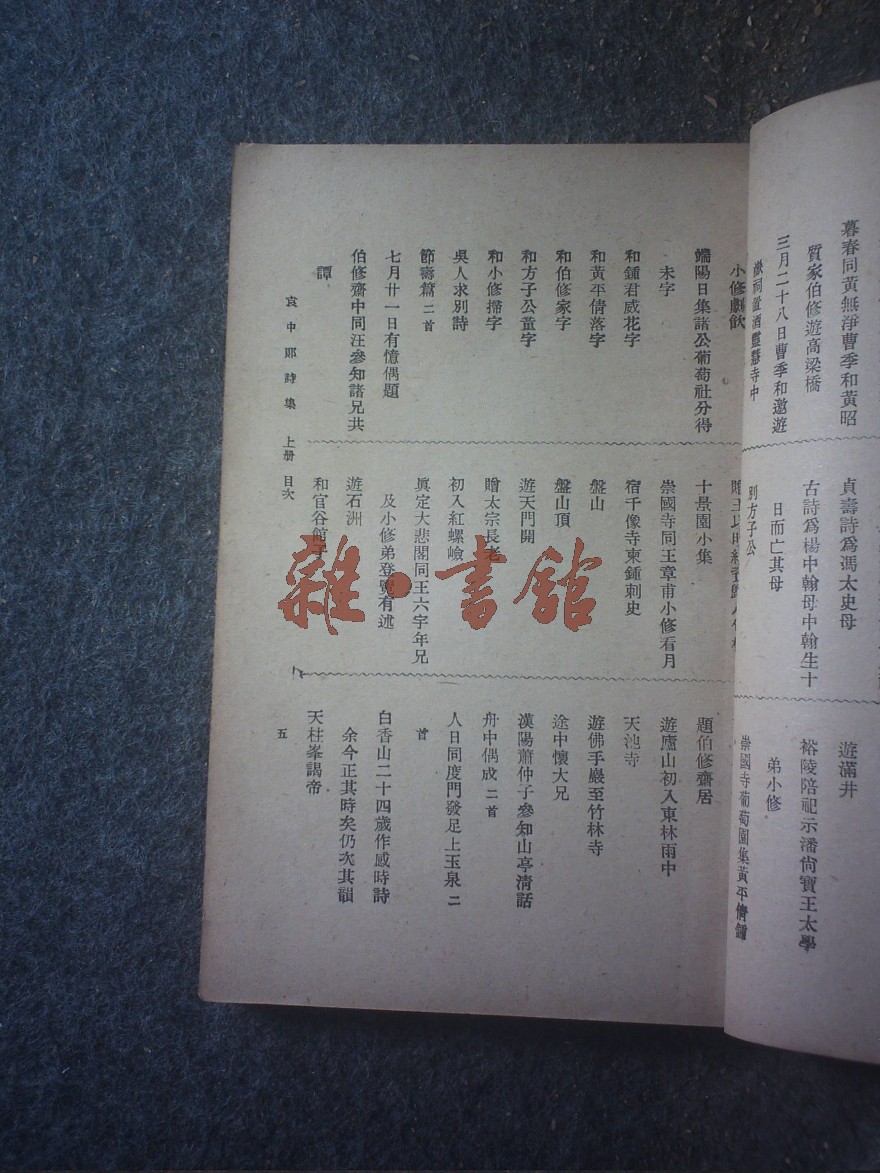 暮春同黃無淨曹季和黃昭
質家伯修遊高梁橋
三月二十八日曹季和邀遊
貞壽詩爲馮太史母
古詩爲楊中翰母中翰生十
日而亡其母
別方子公
遊滿井
裕陵陪祀示潘尙寶王太學
弟小修
崇國寺葡萄園集黃平倩鍾
小修劇飲
端陽日集諸公葡萄社分得
未字
和鍾君威花字
和黃平倩落字
和伯修家字
和方子公薑字
和小修掃字
吳人求別詩
節壽篇 二首
七月廿一日有憶偶題
伯修齋中同汪參知諸兄共
譚
十景園小集
崇國寺同王章甫小修看月
宿千像寺柬鍾刺史
盤山
盤山頂
遊天門開
贈太宗長老
初入紅螺嶮
眞定大悲閣同王六宇年兄
及小修弟登覽有述
遊石洲
和官谷館
題伯修齋居
遊廬山初入東林雨中
天池寺
遊佛手巖至竹林寺
途中懷大兄
漢陽蕭仲子參知山亭淸話
舟中偶成 二首
人日同度門發足上玉泉 二
首
白香山二十四歲作感時詩
余今正其時矣仍次其韻
天柱峯謁帝
袁中郞詩集 上册 目次
五
雜·書館